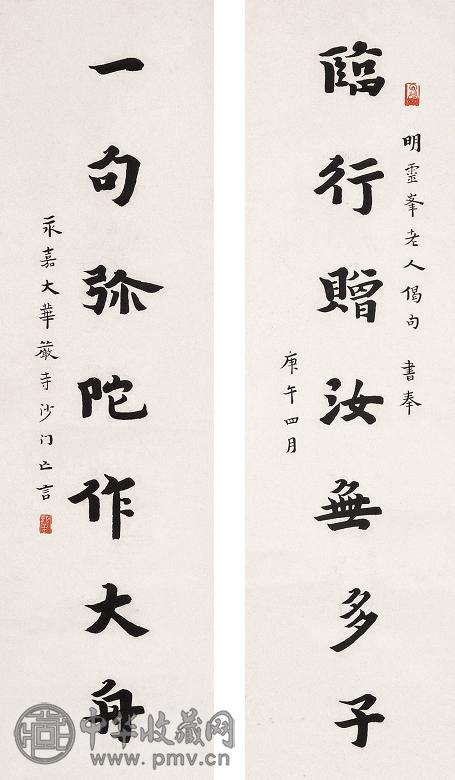 明靈峯老人偈句 書奉
臨行贈汝無多子
庚午四月
一句弥陀作大舟
永嘉大華嚴寺沙门亡言
中华收藏网
www.pmv.cn